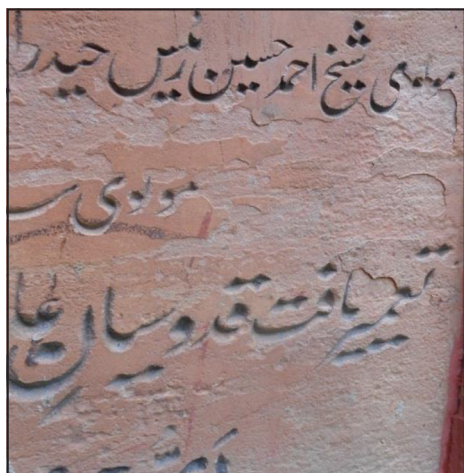 مولوی شیخ احمد حسین رئیس حیدر
مولوی
تعمیر یافت قدوسیان